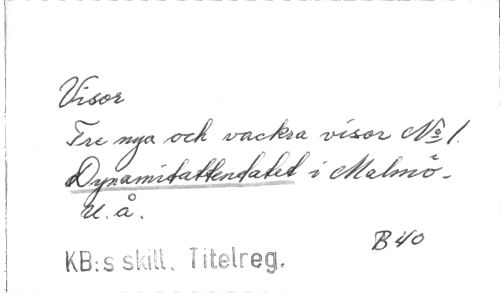 Visor
Tre nya och vackra visor No 1.
Dynamitattendatet i Malmö.
U. å.
B 40
KB:s skill. Titelreg.